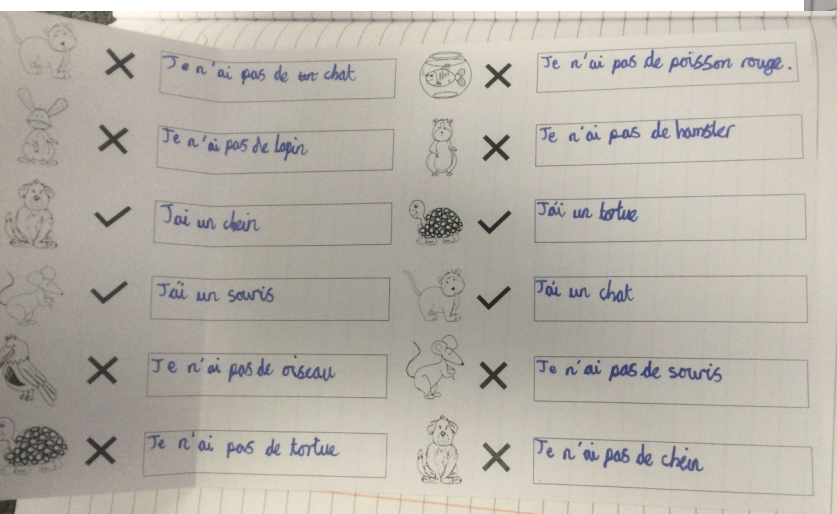 Je n'ai pas de un chat
Je n'ai pas de lapin
Jai un chein
J'ai un souris
Je n'ai pas de oiseau
Je n'ai pas de tortue
Je n'ai pas de poisson rouge.
Je n'ai pas de hamster
J'ai un tortue
J'ai un chat
Je n'ai pas de souris
Je n'ai pas de chein